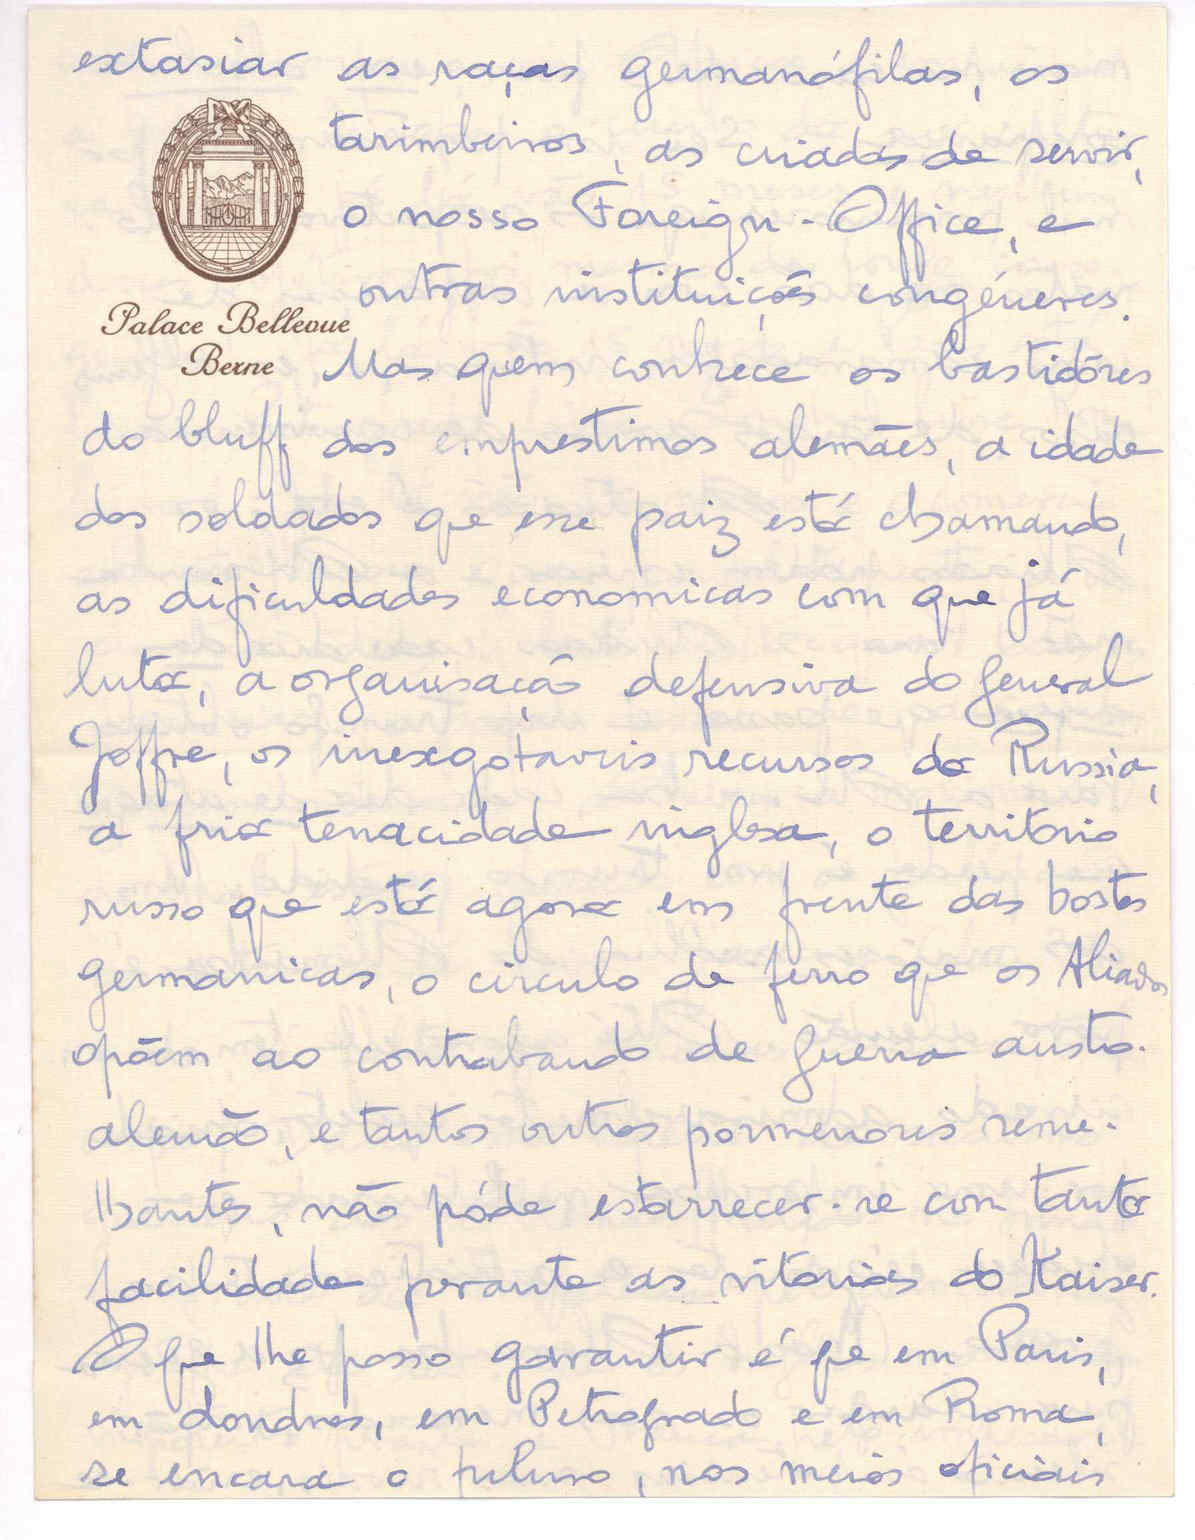 extasiar as raças germanófilas, os
tarimbeiros, as criadas de servir,
o nosso Foreign-Office, e
outras instituições congéneres.
Palace Bellevue
Berne
Mas quem conhece os bastidôres
do bluff dos emprestimos alemães, a idade
dos soldados que esse paiz está chamando,
as dificuldades economicas com que já
luta, a organisação defensiva do general
Joffre, os inexgotaveis recursos da Russia,
a fria tenacidade inglesa, o territorio
russo que está agora em frente das hostes
germanicas, o circulo de ferro que os Aliados
opõem ao contrabando de guerra austro-
alemão, e tantos outros pormenores seme-
lhantes, não póde estarrecer-se com tanta
facilidade perante as vitorias do Kaiser.
O que lhe posso garantir é que em Paris,
em Londres, em Petrogrado e em Roma,
se encara o futuro, nos meios oficiais